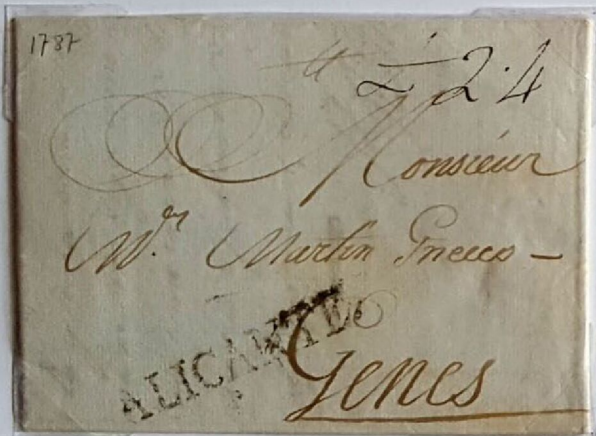 1787
£ 2.4
Monsieur
Mr. Martin Gnecco -
ALICANTE
Genes